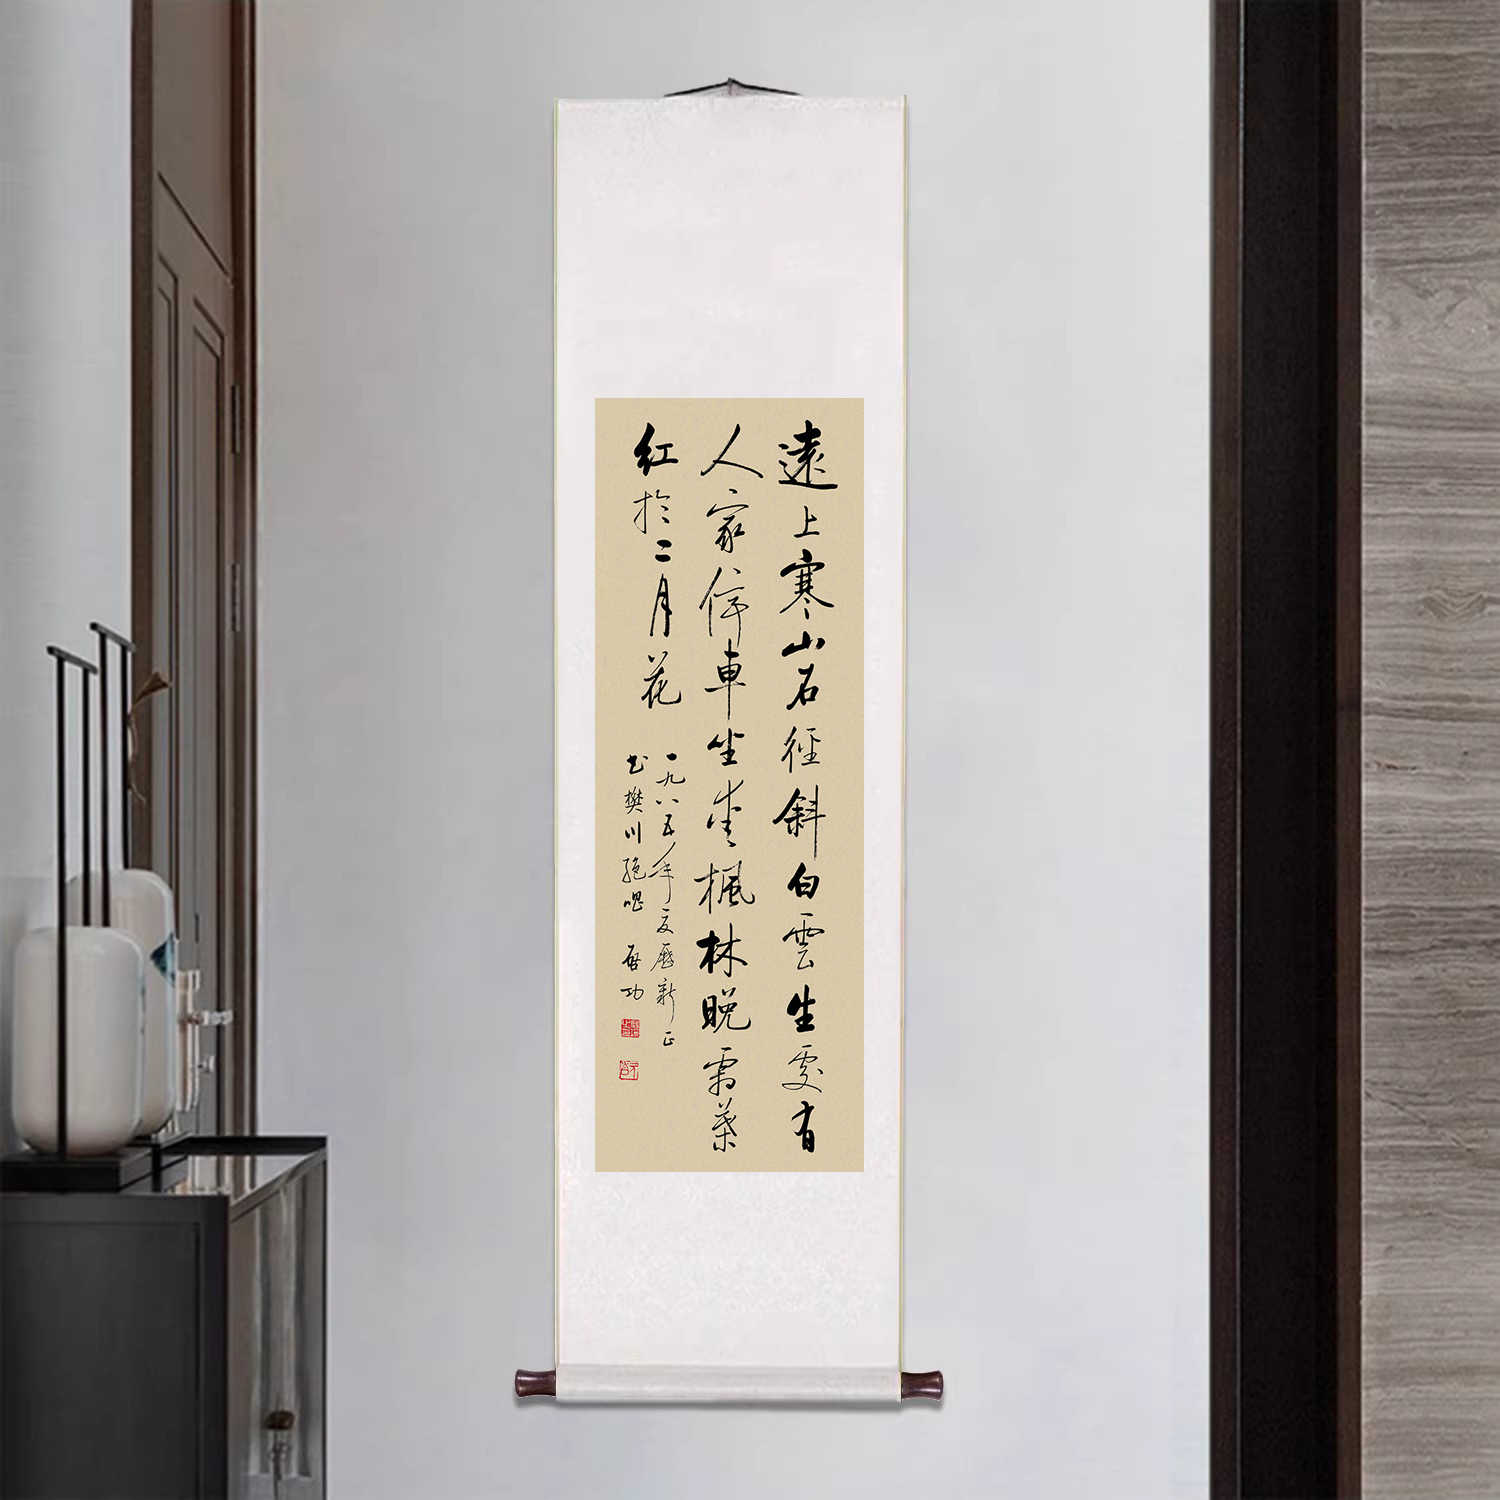 遠上寒山石徑斜白雲生處有
人家停車坐愛楓林晚霜葉
紅於二月花
一九八五年夏歷新正
書樊川絕唱 啓功